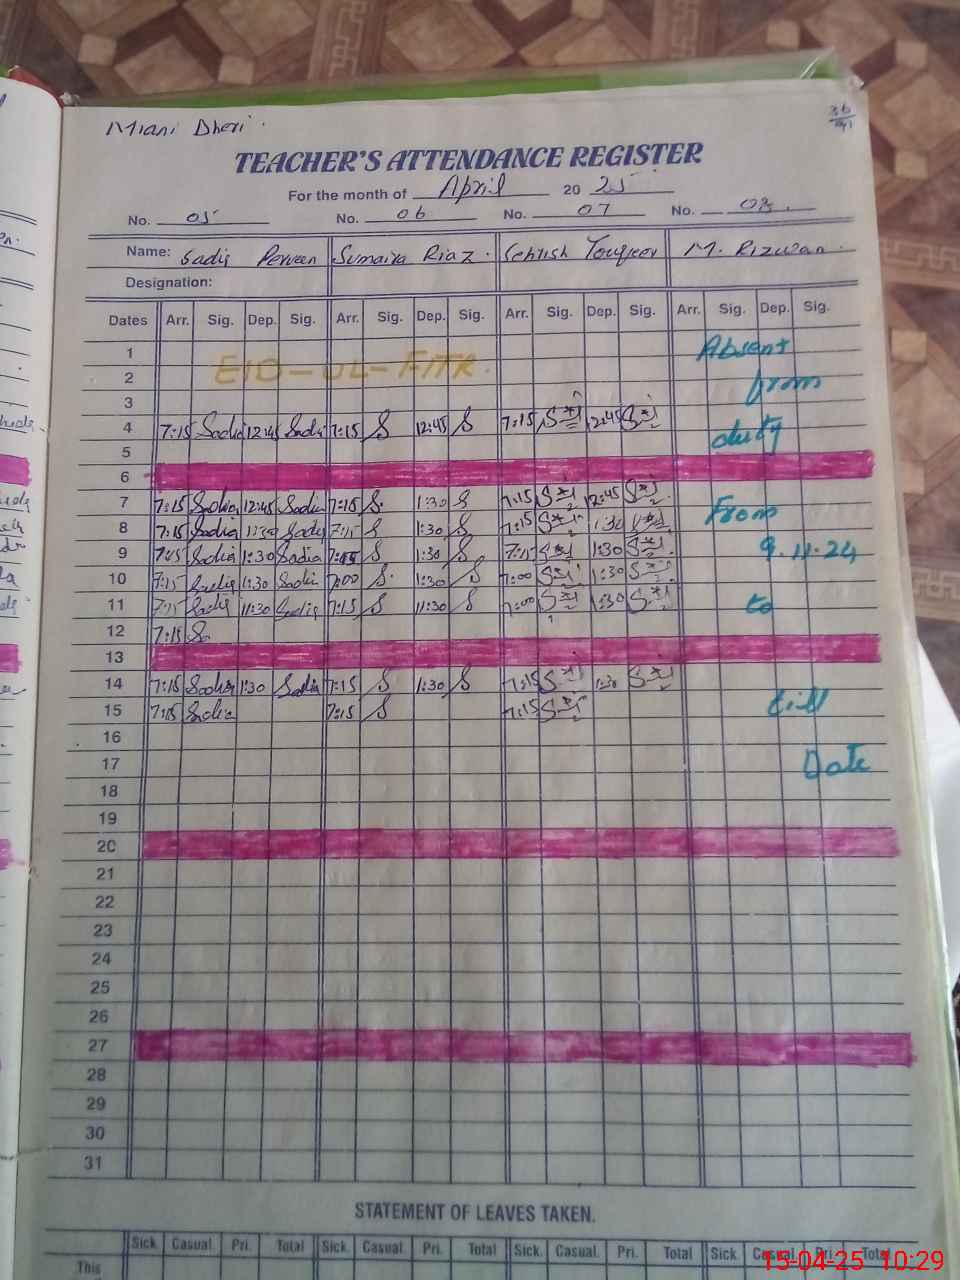 Miani Dheri.
TEACHER'S ATTENDANCE REGISTER
For the month of April 20 25
No. 05 No. 06 No. 07 No. 08
Name: Sadia Perveen Sumaira Riaz. Sehrish Touqeer M. Rizwan.
Designation:
Dates Arr. Sig. Dep. Sig. Arr. Sig. Dep. Sig. Arr. Sig. Dep. Sig. Arr. Sig. Dep. Sig.
1 Absent
2 EID-UL-FITR. from
3
4 7:15 Sadia 12:45 Sadia 7:15 S 12:45 S 7:15 12:45 duty
5
6
7 7:15 Sadia 12:45 Sadia 7:15 S. 1:30 S 7:15 12:45 From
8 7:15 Sadia 1:30 Sadia 7:15 S 1:30 S 7:15 1:30
9 7:15 Sadia 1:30 Sadia 7:15 S 1:30 S 7:15 1:30 9.11.24
10 7:15 Sadia 1:30 Sadia 7:00 S. 1:30 S 7:00 1:30
11 7:15 Sadia 11:30 Sadia 7:15 S 11:30 S 7:00 1:30 to
12 7:15 S
13
14 7:15 Sadia 1:30 Sadia 7:15 S 1:30 S 7:15 1:30
15 7:15 Sadia 7:15 S 7:15 till
16
17 Date
18
19
20
21
22
23
24
25
26
27
28
29
30
31
STATEMENT OF LEAVES TAKEN.
Sick. Casual. Pri. Total Sick. Casual. Pri. Total Sick. Casual. Pri. Total Sick. Casual. Pri. Total
This
15-04-25 10:29